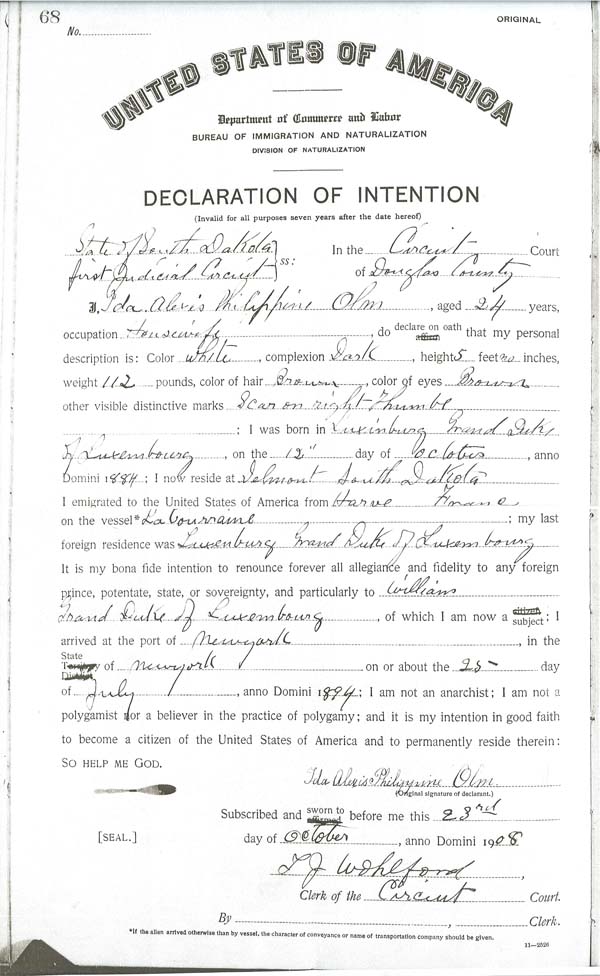 68
No.
ORIGINAL
UNITED STATES OF AMERICA
Department of Commerce and Labor
BUREAU OF IMMIGRATION AND NATURALIZATION
DIVISION OF NATURALIZATION
DECLARATION OF INTENTION
(Invalid for all purposes seven years after the date hereof)
State of South Dakota
first Judicial Circuit ss:
In the Circuit Court
of Douglas County
I, Ida Alexis Philippine Olm, aged 24 years,
occupation Housewife, do declare on oath affirm that my personal
description is: Color White, complexion Dark, height 5 feet no inches,
weight 112 pounds, color of hair Brown, color of eyes Brown
other visible distinctive marks Scar on right Thumbe
; I was born in Luxinburg Grand Duke
of Luxembourg, on the 12" day of October, anno
Domini 1884; I now reside at Delmont South Dakota
I emigrated to the United States of America from Harve France
on the vessel* La Tourraine; my last
foreign residence was Luxenburg Grand Duke of Luxembourg
It is my bona fide intention to renounce forever all allegiance and fidelity to any foreign
prince, potentate, state, or sovereignty, and particularly to William
Grand Duke of Luxembourg, of which I am now a citizen subject; I
arrived at the port of Newyork, in the
State Territory District of Newyork on or about the 25 day
of July, anno Domini 1894; I am not an anarchist; I am not a
polygamist nor a believer in the practice of polygamy; and it is my intention in good faith
to become a citizen of the United States of America and to permanently reside therein:
SO HELP ME GOD.
Ida Alexis Philippine Olm
(Original signature of declarant.)
Subscribed and sworn to affirmed before me this 23rd
[SEAL.] day of October, anno Domini 1908
T J Wohlford,
Clerk of the Circiut Court.
By , Clerk.
*If the alien arrived otherwise than by vessel, the character of conveyance or name of transportation company should be given.
11—2626